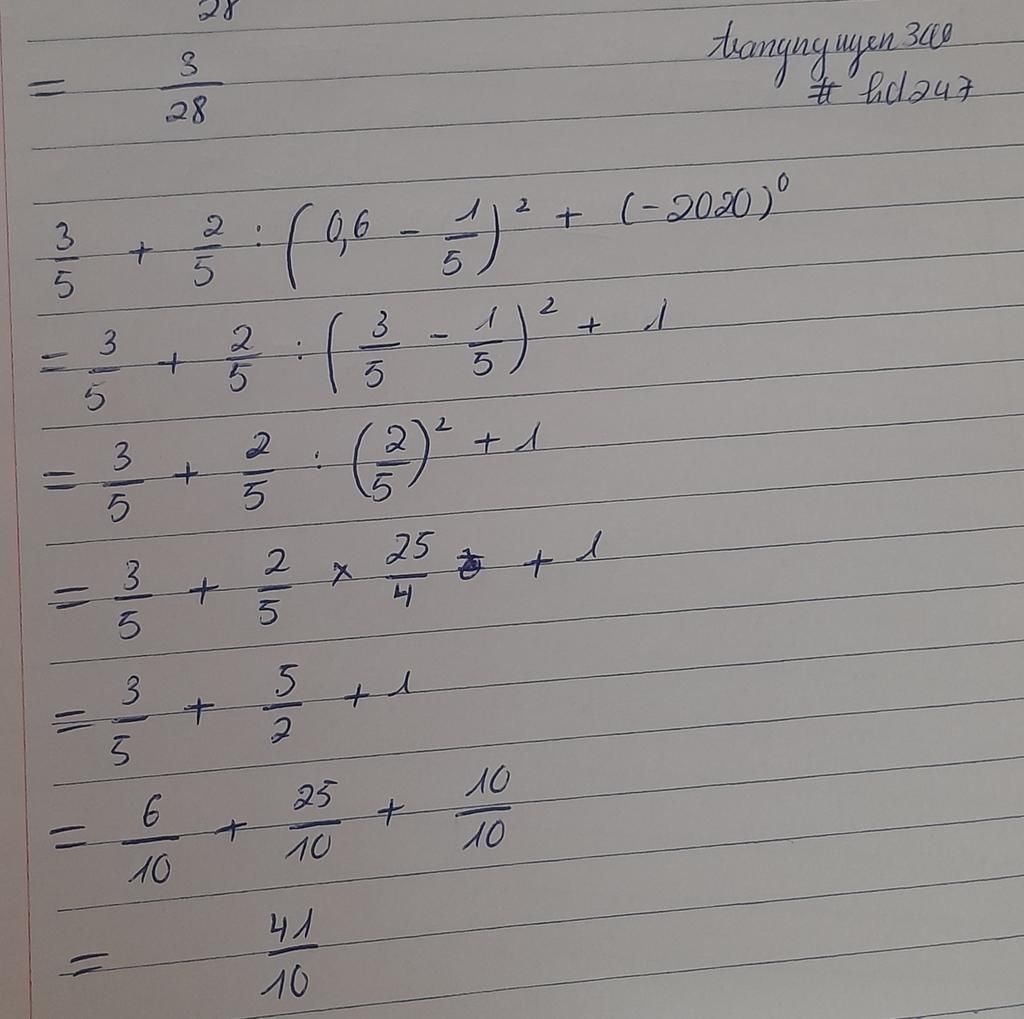 28
= 3/28
trangnguyen
# hd247
3/5 + 2/5 : (0,6 - 1/5)² + (-2020)⁰
= 3/5 + 2/5 : (3/5 - 1/5)² + 1
= 3/5 + 2/5 : (2/5)² + 1
= 3/5 + 2/5 × 25/4 + 1
= 3/5 + 5/2 + 1
= 6/10 + 25/10 + 10/10
= 41/10